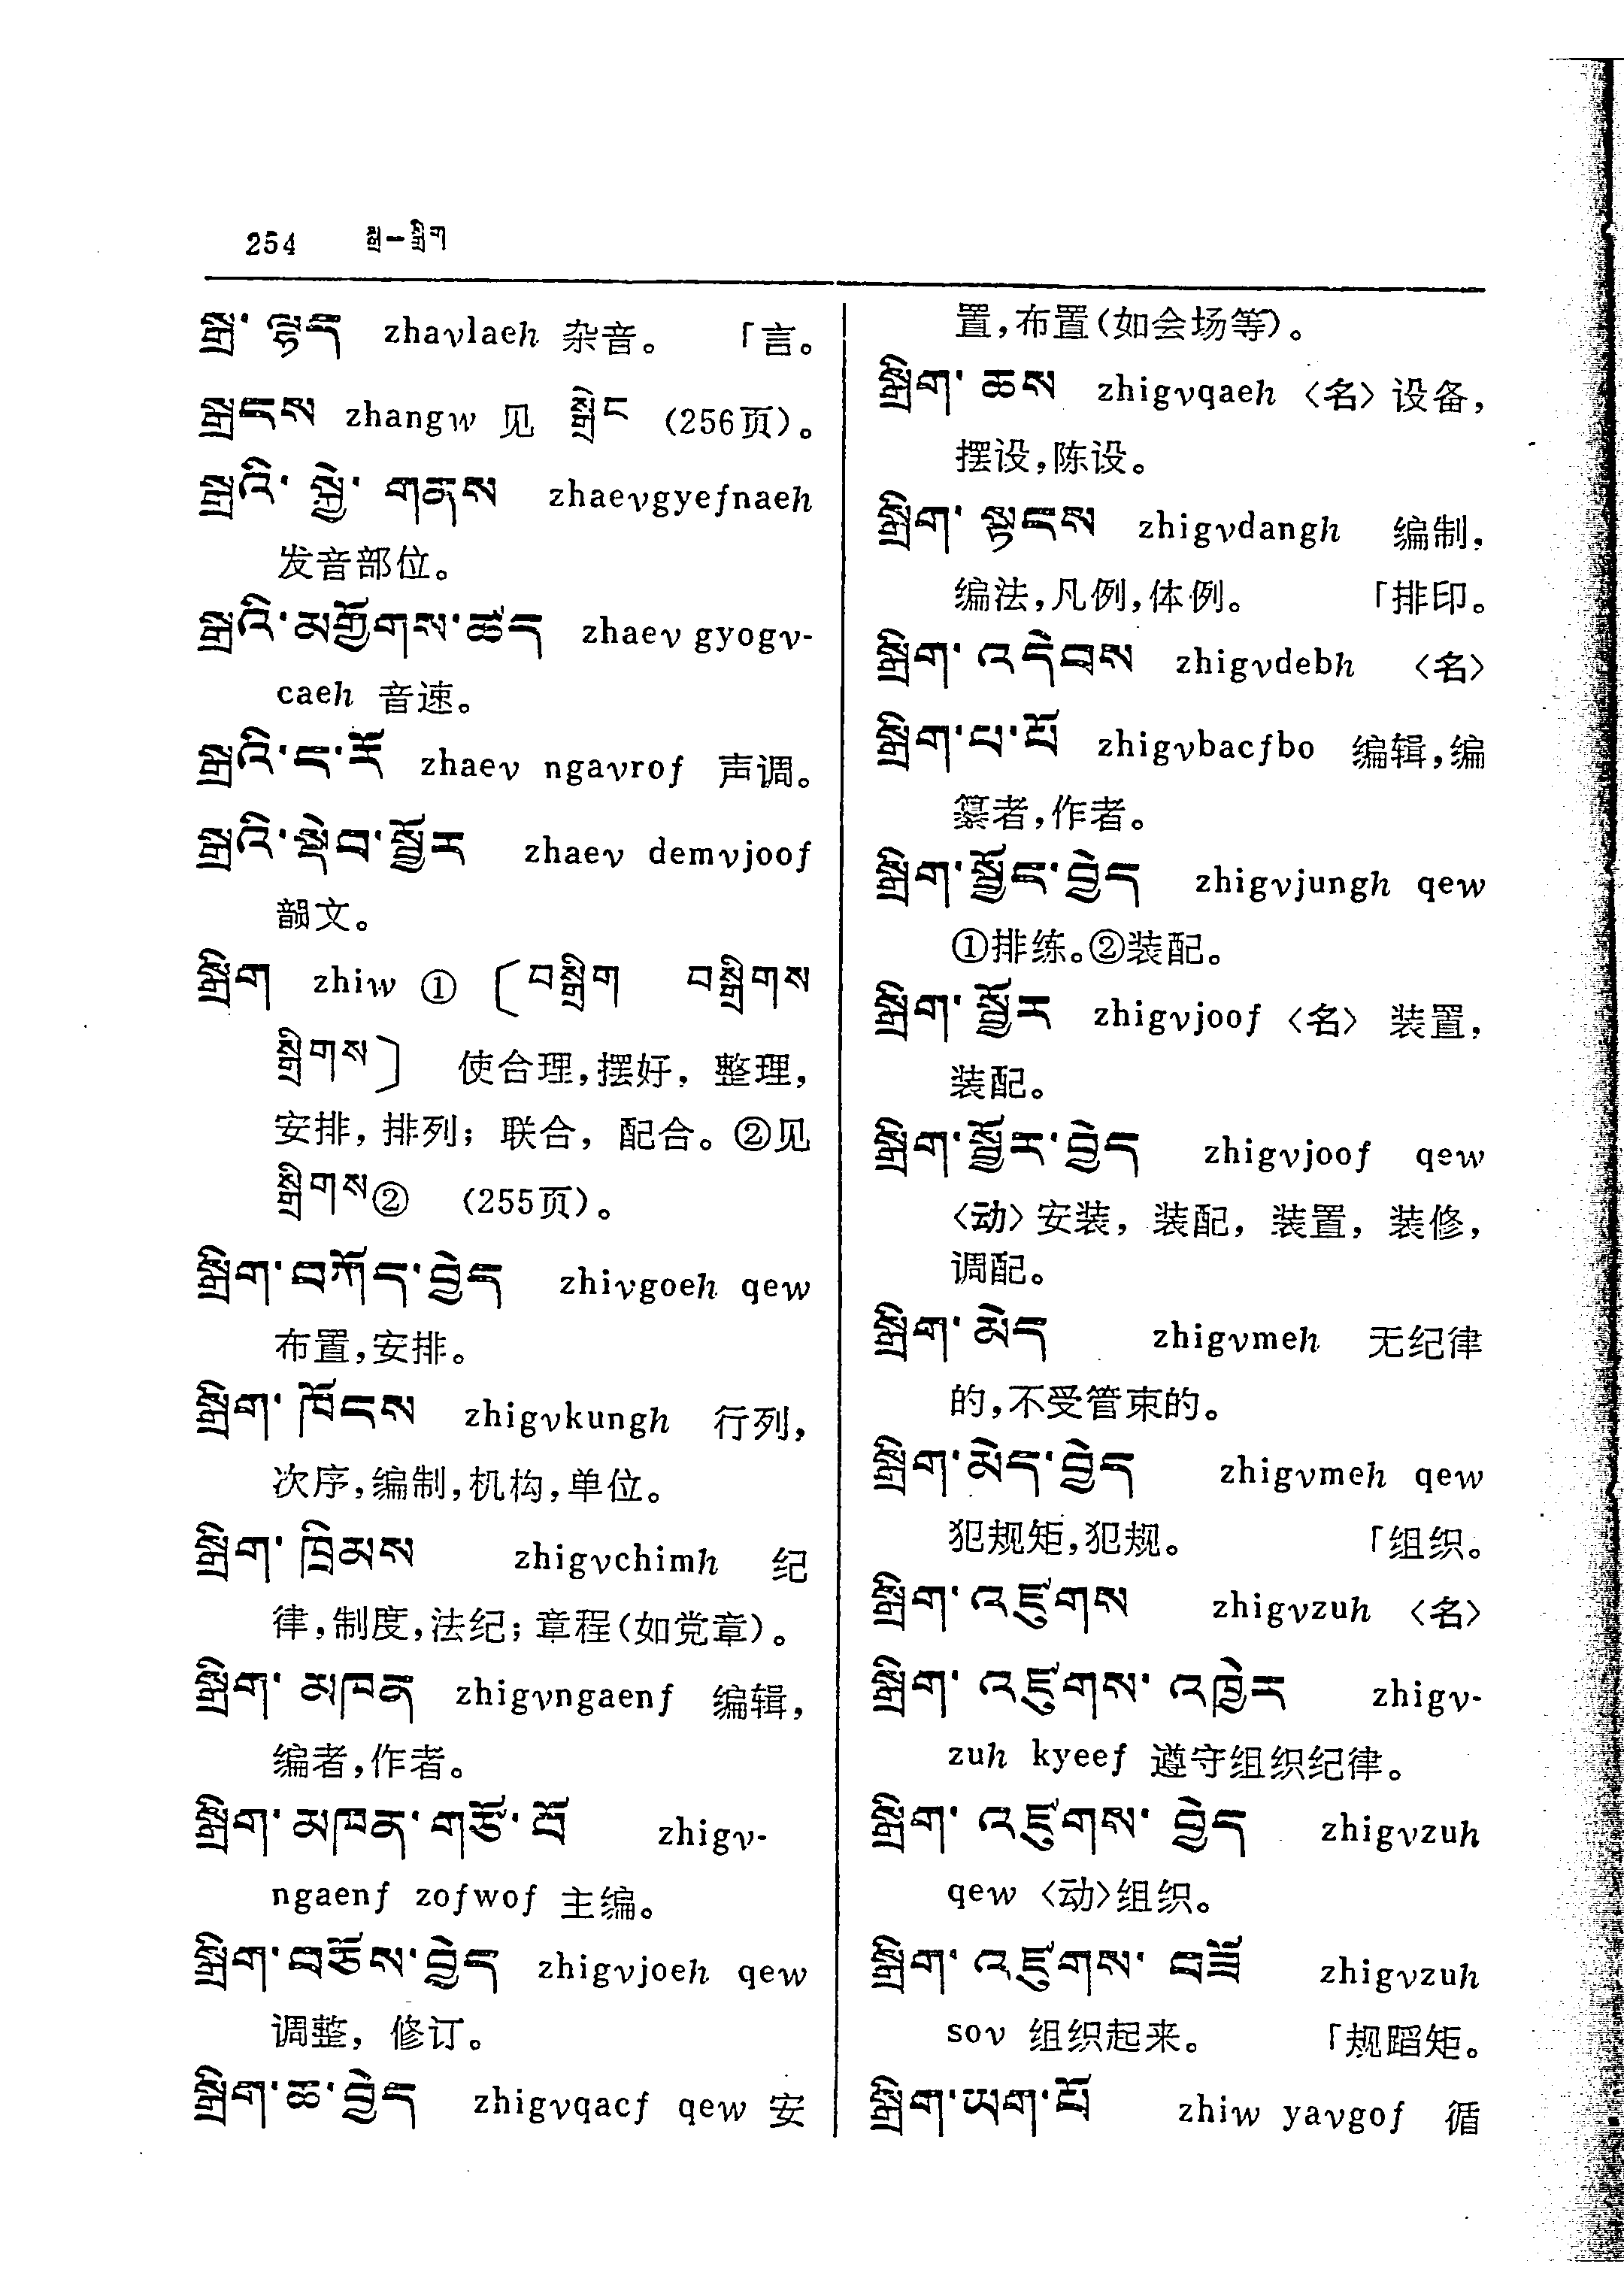 254 སྒྲ—སྒྲིག
སྒྲ་ ལྷད zhavlaeh 杂音。 「言。
སྒྲངས zhangw 见 སྒྲེང (256页)。
སྒྲའི་ སྐྱེ་ གནས zhaevgyefnaeh
发音部位。
སྒྲའི་མགྱོགས་ཚད zhaev gyogv-
caeh 音速。
སྒྲའི་ང་རོ zhaev ngavrof 声调。
སྒྲའི་སྡེབ་སྦྱོར zhaev demvjoof
韵文。
སྒྲིག zhiw ① 〔བསྒྲིག བསྒྲིགས
སྒྲིགས〕 使合理,摆好, 整理,
安排, 排列; 联合, 配合。②见
སྒྲིགས② (255页)。
སྒྲིག་བཀོད་བྱེད zhivgoeh qew
布置,安排。
སྒྲིག་ ཁོངས zhigvkungh 行列,
次序,编制,机构,单位。
སྒྲིག་ ཁྲིམས zhigvchimh 纪
律,制度,法纪; 章程(如党章)。
སྒྲིག་ མཁན zhigvngaenf 编辑,
编者,作者。
སྒྲིག་མཁན་གཙོ་བོ zhigv-
ngaenf zofwof 主编。
སྒྲིག་བཅོས་བྱེད zhigvjoeh qew
调整, 修订。
སྒྲིག་ཆ་བྱེད zhigvqacf qew 安
置,布置(如会场等)。
སྒྲིག་ ཆས zhigvqaeh 〈名〉 设备,
摆设,陈设。
སྒྲིག་ སྟངས zhigvdangh 编制,
编法,凡例,体例。 「排印。
སྒྲིག་ འདེབས zhigvdebh 〈名〉
སྒྲིག་པ་པོ zhigvbacfbo 编辑,编
纂者,作者。
སྒྲིག་སྦྱོང་བྱེད zhigvjungh qew
①排练。②装配。
སྒྲིག་ སྦྱོར zhigvjoof 〈名〉 装置,
装配。
སྒྲིག་སྦྱོར་བྱེད zhigvjoof qew
〈动〉 安装, 装配, 装置, 装修,
调配。
སྒྲིག་ མེད zhigvmeh 无纪律
的,不受管束的。
སྒྲིག་མེད་བྱེད zhigvmeh qew
犯规矩,犯规。 「组织。
སྒྲིག་ འཛུགས zhigvzuh 〈名〉
སྒྲིག་ འཛུགས་ འཁྱེར zhigv-
zuh kyeef 遵守组织纪律。
སྒྲིག་ འཛུགས་ བྱེད zhigvzuh
qew 〈动〉组织。
སྒྲིག་ འཛུགས་ བཟོ zhigvzuh
sov 组织起来。 「规蹈矩。
སྒྲིག་ཡག་པོ zhiw yavgof 循